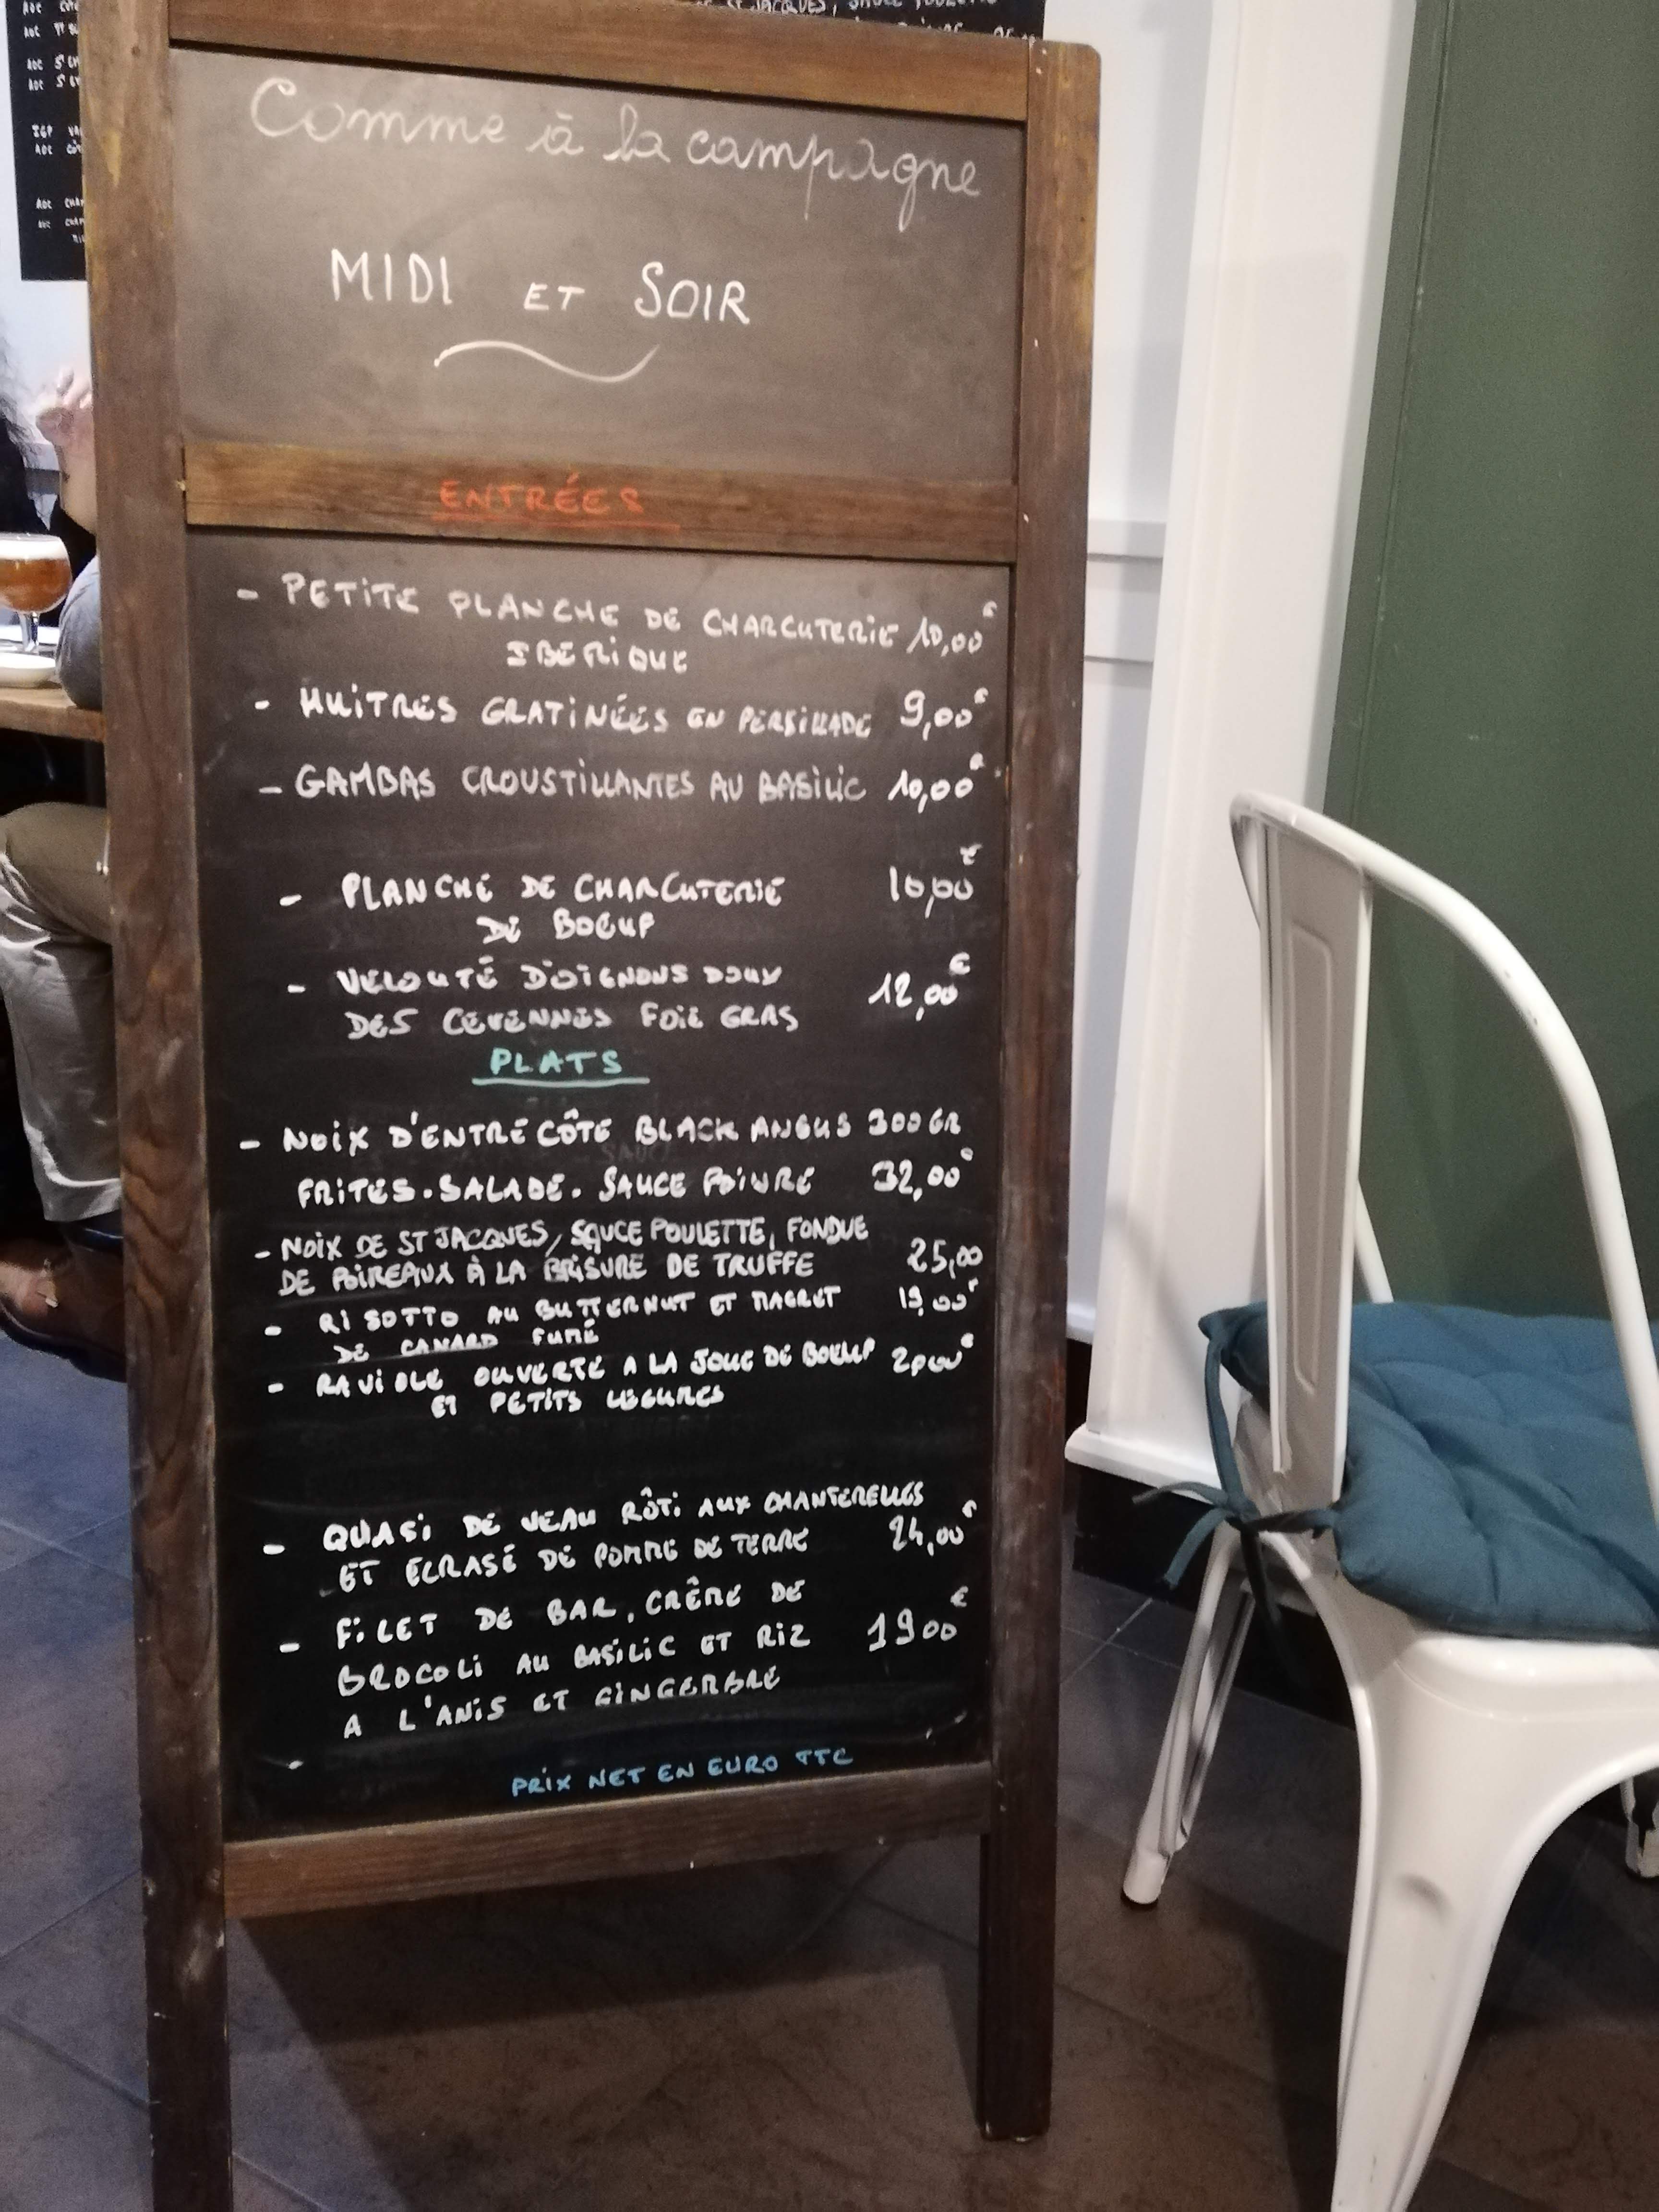 Comme à la campagne
MIDI ET SOIR
ENTRÉES
- PETITE PLANCHE DE CHARCUTERIE 10,00€
IBERIQUE
- HUITRES GRATINÉES EN PERSILLADE 9,00€
- GAMBAS CROUSTILLANTES AU BASILIC 10,00€
- PLANCHE DE CHARCUTERIE 10,00€
DE BOEUF
- VELOUTÉ D'OIGNONS DOUX 12,00€
DES CEVENNES FOIE GRAS
PLATS
- NOIX D'ENTRECÔTE BLACK ANGUS 300 GR
FRITES. SALADE. SAUCE POIVRE 32,00€
- NOIX DE ST JACQUES, SAUCE POULETTE, FONDUE
DE POIREAUX À LA BRISURE DE TRUFFE 25,00
- RISOTTO AU BUTTERNUT ET MAGRET 19,00€
DE CANARD FUMÉ
- RAVIOLE OUVERTE A LA JOUE DE BOEUF 20,00€
ET PETITS LEGUMES
- QUASI DE VEAU RÔTI AUX CHANTERELLES
ET ECRASÉ DE POMME DE TERRE 24,00€
- FILET DE BAR, CRÊME DE
BROCOLI AU BASILIC ET RIZ 19 00€
A L'ANIS ET GINGEMBRE
PRIX NET EN EURO TTC